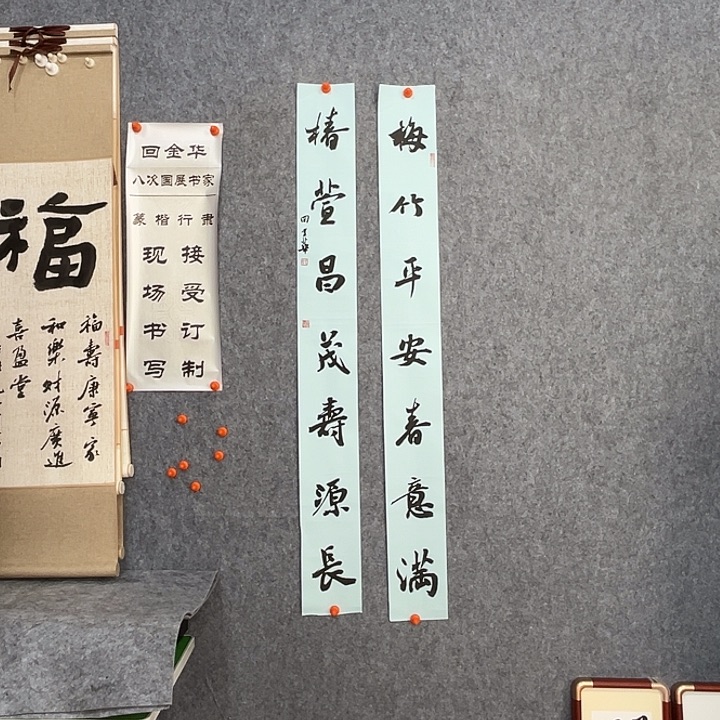 福
福壽康寧家
和樂财源廣進
喜盈堂
回金华
八次国展书家
篆楷行隶
现场书写
接受订制
梅竹平安春意满
椿萱昌茂壽源長